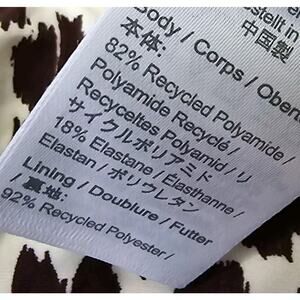 estellt in
中国製
Body / Corps / Obers
本体:
82% Recycled Polyamide /
Polyamide Recyclé /
Recyceltes Polyamid / リ
サイクルポリアミド
18% Elastane / Élasthanne /
Elastan / ポリウレタン
Lining / Doublure / Futter
/ 裏地:
92% Recycled Polyester /